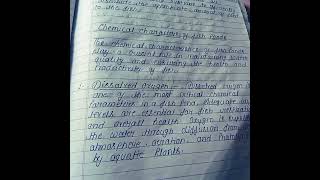 to the
Chemical characters of fish Ponds
The chemical characteristics of fish Ponds
play a crucial role in maintaining water
quality and ensuring the health and
Productivity of fish.
1. Dissolved oxygen - Dissolved oxygen is
one of the most critical chemical
Parameters in a fish Pond. Adequate
levels are essential for fish
and overall health. Oxygen is
the water through diffusion from
atmosphere, aeration, and
by aquatic Plants.